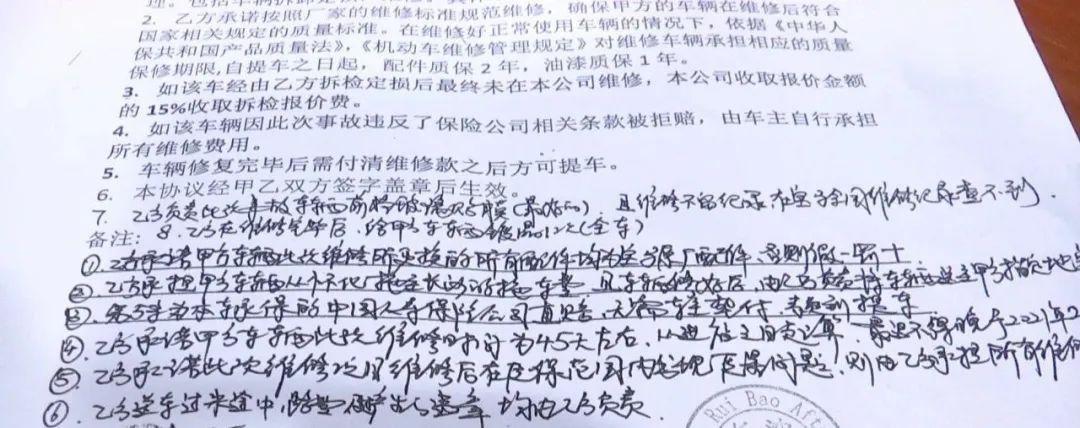 理。包括车辆拆卸定损
2. 乙方承诺按照厂家的维修标准规范维修，确保甲方的车辆在维修后符合
国家相关规定的质量标准。在维修好正常使用车辆的情况下，依据《中华人
保共和国产品质量法》，《机动车维修管理规定》对维修车辆承担相应的质量
保修期限,自提车之日起，配件质保 2 年，油漆质保 1 年。
3. 如该车经由乙方拆检定损后最终未在本公司维修，本公司收取报价金额
的 15%收取拆检报价费。
4. 如该车辆因此次事故违反了保险公司相关条款被拒赔，由车主自行承担
所有维修费用。
5. 车辆修复完毕后需付清维修款之后方可提车。
6. 本协议经甲乙双方签字盖章后生效。
7. 乙方负责此次事故车辆前挡玻璃及膜(最好的) 且维修不留纪录 全国维修纪录查不到.
备注: 8. 乙方在维修完毕后、给甲方车辆镀晶1次(全车)
① 乙方承诺甲方车辆此次维修所更换的所有配件均为原厂配件、否则假一赔十
② 乙方承担甲方车辆从 拖至 的拖车费 且车辆修好后，由乙方负责将车辆送至甲方指定地点
③ 为本车承保的中国人寿保险公司直赔、无需车主垫付、
④ 乙方承诺甲方车辆此次维修时间为45天左右、从进 之日起算、最迟不得晚于2021年2
⑤ 乙方承诺此次维修 维修后在质保范围内出现质保问题, 则由乙方承担所有维修
⑥ 乙方送车过来途中, 均由乙方负责.
Rui Bao Aft